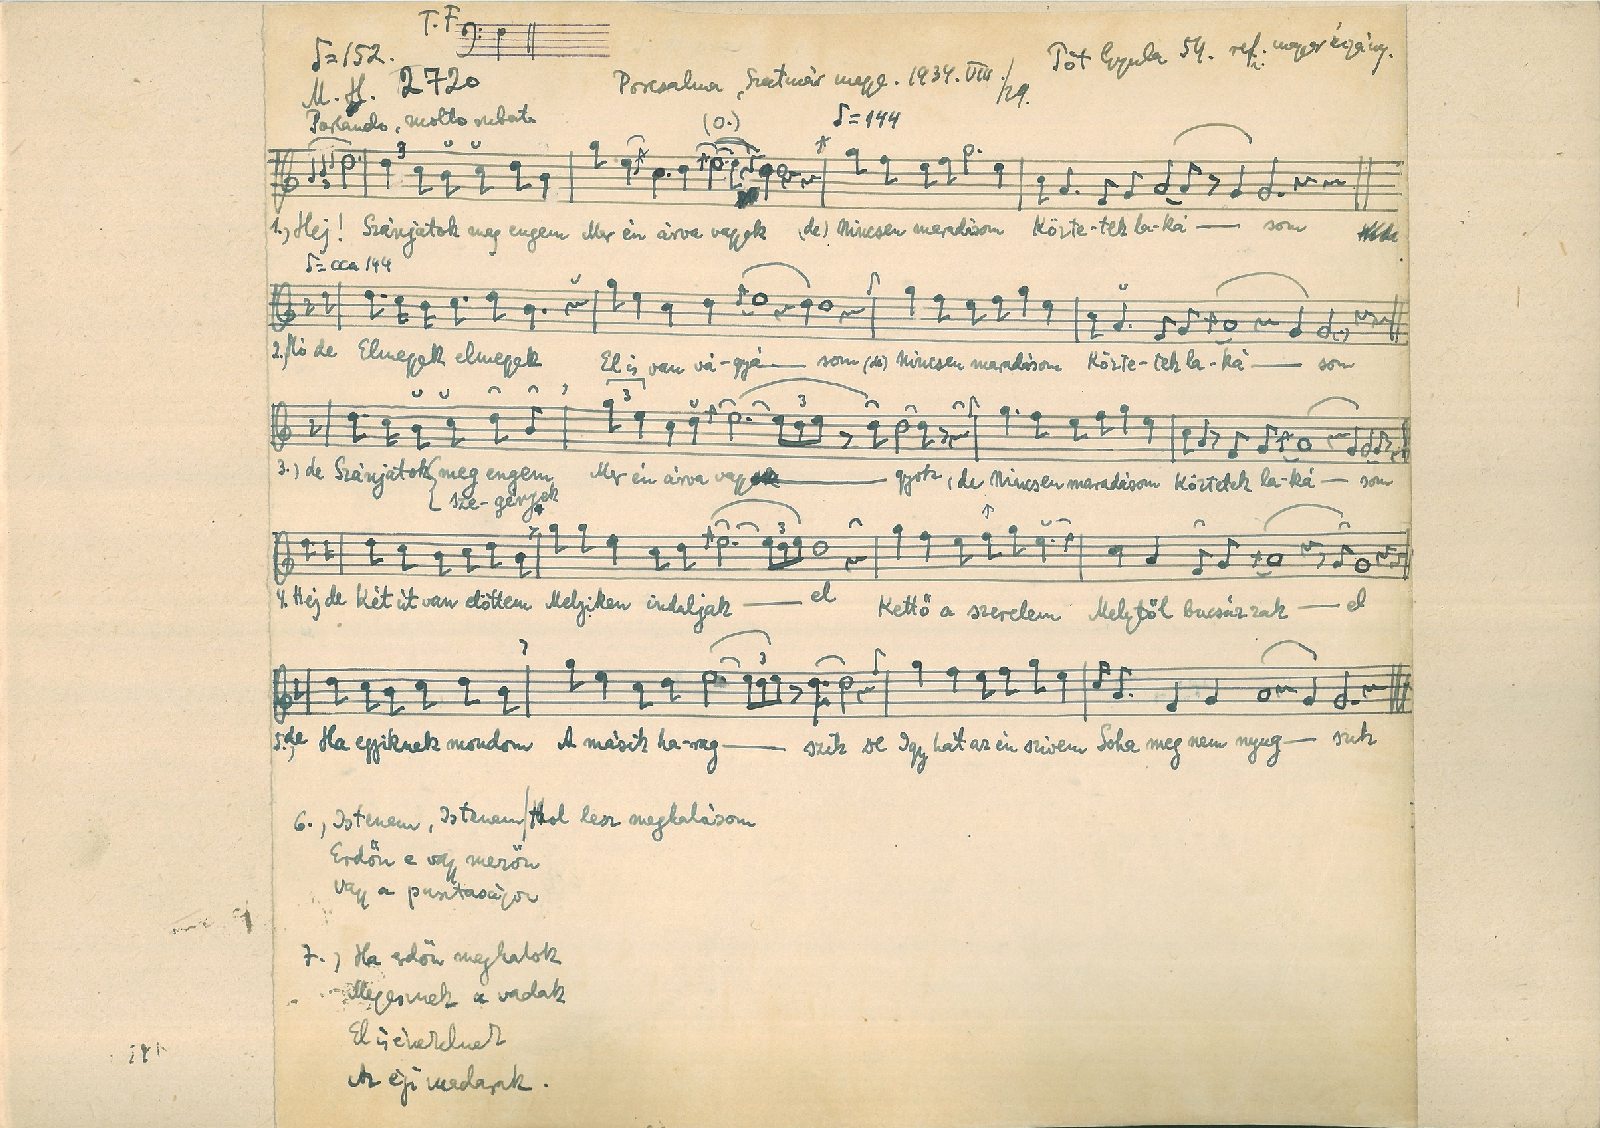 T. F
♪=152.
M. H. 2720
Porcsalma, Szatmár megye. 1934. VIII./29.
Tót Gyula 54. ref. magyar cigány.
Parlando, molto rubato
(0.)
♪=144
1., Hej! Szánjátok meg engem Mer én árva vagyok (de) Nincsen maradásom Közte-tek la-ká — som
♪=cca 144
2., Nó de Elmegyek elmegyek El is van vá-gyá — som (de) Nincsen maradásom Közte-tek la-ká — som
3., de Szánjátok { meg engem Mer én árva vagy — gyok, de Nincsen maradásom Köztetek la-ká — som
{ sze-gények
4. Hej de Két út van előttem Melyiken induljak — el Kettő a szerelem Melytől bucsúzzak — el
5., de Ha egyiknek mondom A másik ha-rag — szik de Igy hát az én szivem Soha meg nem nyug — szik
6., Istenem, Istenem / Hol lesz meghalásom
Erdőn e vagy mezőn
Vagy a pusztaságon
7., Ha erdőn meghalok
Megesznek a vadak
El is
Az égi madarak.